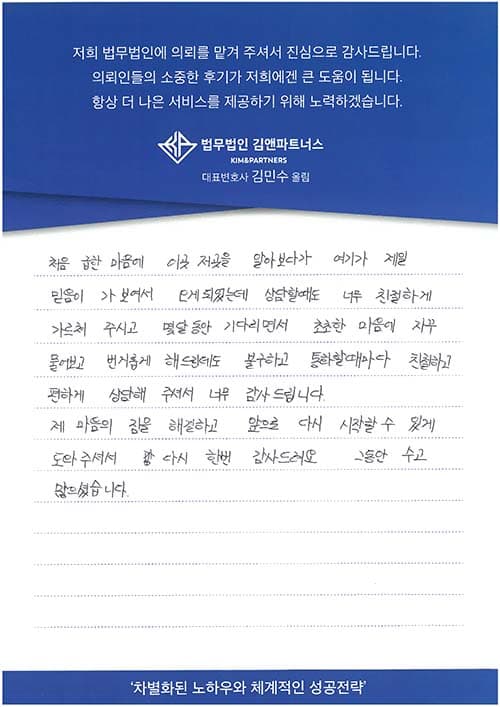 저희 법무법인에 의뢰를 맡겨 주셔서 진심으로 감사드립니다.
의뢰인들의 소중한 후기가 저희에겐 큰 도움이 됩니다.
항상 더 나은 서비스를 제공하기 위해 노력하겠습니다.
법무법인 김앤파트너스
KIM&PARTNERS
대표변호사 김민수 올림
처음 급한 마음에 이곳 저곳을 알아보다가 여기가 제일
믿음이 가 보여서 되었는데 상담할때도 너무 친절하게
가르쳐 주시고 몇달동안 기다리면서 초초한 마음에 자꾸
물어보고 번거롭게 해드림에도 불구하고 통화할때마다 친절하고
편하게 상담해 주셔서 너무 감사드립니다.
제 마음의 짐을 해결하고 앞으로 다시 시작할 수 있게
도와주셔서 다시 한번 감사드려요 그동안 수고
많으셨습니다.
'차별화된 노하우와 체계적인 성공전략'